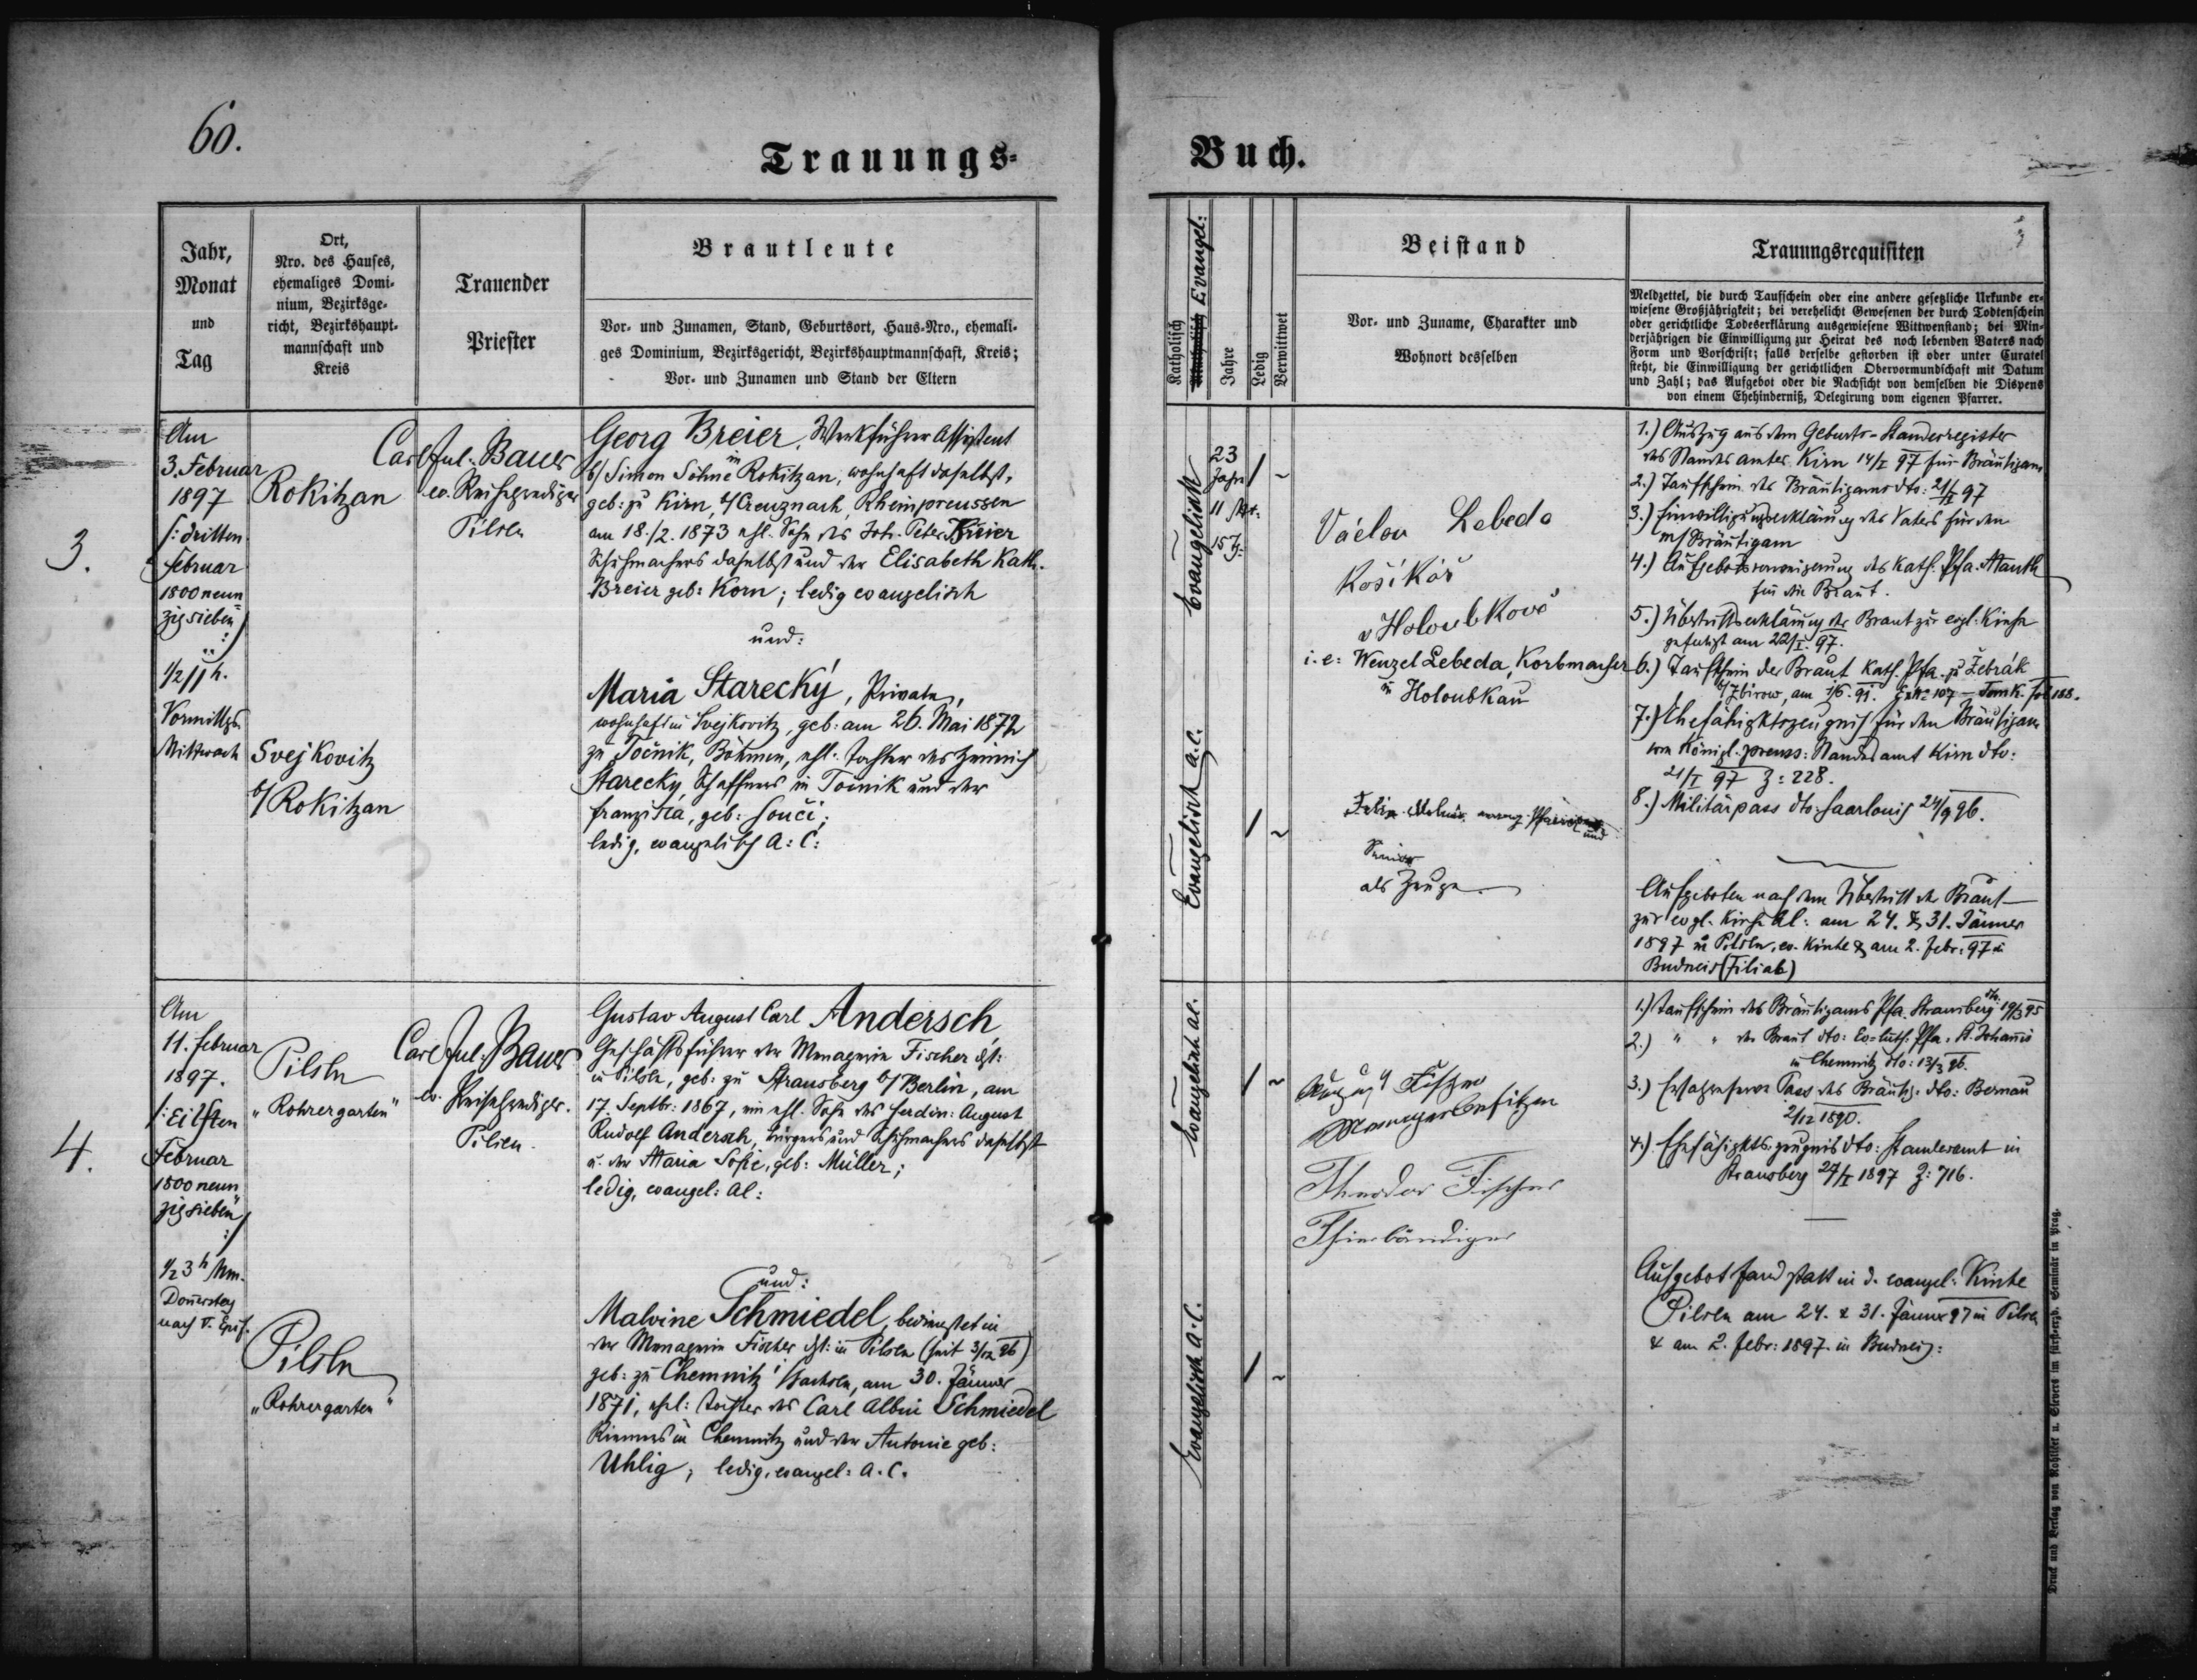 60.
Trauungs-
Buch.
Jahr,
Monat
und
Tag
Ort,
Nro. des Hauses,
ehemaliges Domi-
nium, Bezirksge-
richt, Bezirkshaupt-
mannschaft und
Kreis
Trauender
Priester
Brautleute
Vor- und Zunamen, Stand, Geburtsort, Haus-Nro., ehemali-
ges Dominium, Bezirksgericht, Bezirkshauptmannschaft, Kreis;
Vor- und Zunamen und Stand der Eltern
Katholisch
Evangel:
Jahre
Ledig
Verwittwet
Beistand
Vor- und Zuname, Charakter und
Wohnort desselben
Trauungsrequisiten
Meldzettel, die durch Taufschein oder eine andere gesetzliche Urkunde er-
wiesene Großjährigkeit; bei verehelicht Gewesenen der durch Todtenschein
oder gerichtliche Todeserklärung ausgewiesene Wittwenstand; bei Min-
derjährigen die Einwilligung zur Heirat des noch lebenden Vaters nach
Form und Vorschrift; falls derselbe gestorben ist oder unter Curatel
steht, die Einwilligung der gerichtlichen Obervormundschaft mit Datum
und Zahl; das Aufgebot oder die Nachsicht von demselben die Dispens
von einem Ehehinderniß, Delegirung vom eigenen Pfarrer.
3.
Am
3. Februar
1897
/: dritten
Februar
1800 neun
zig sieben
:/
1/2 11 h.
Vormittgs
Mittwoch
Rokitzan
Svejkovitz
b/ Rokitzan
Carl Jul. Bauer
ev. Reiseprediger
Pilsen
Georg Breier, Werkführer Assistent
b/ Simon Söhne in Rokitzan, wohnhaft daselbst,
geb: zu Kirn, b/ Creuznach, Rheinpreussen
am 18./2. 1873 ehl. Sohn des Joh. Peter Breier
Schuhmachers daselbst und der Elisabeth Kath.
Breier geb: Korn; ledig evangelisch
und:
Maria Starecký, Private,
wohnhaft in Svejkovitz, geb: am 26. Mai 1872
zu Točnik, Böhmen, ehl. Tochter des Heinrich
Starecky, Schaffners in Točnik und der
Franziska, geb: Součí;
ledig, evangelisch A: C:
Evangelisch
Evangelisch a.C.
23
Jahre
11 Mt.
15 T.
Václav Lebeda
Košíkář
v Holoubkově
i. e: Wenzel Lebeda, Korbmacher
in Holoubkau
und
Senior
als Zeuge
1.) Auszug aus dem Geburts-Standesregister
des Standesamtes Kirn 14/I 97 für Bräutigam
2.) Taufschein des Bräutigams dto: 21/I 97
3.) Einwilligungserklärung des Vaters für den
m/ Bräutigam
4.) Aufgebotsverweigerung des Kath. Pfa. Mauth
für die Braut.
5.) Übertrittserklärung der Braut zur evgl. Kirche
gefertigt am 22/I. 97.
6.) Taufschein der Braut Kath. Pfa. zu Žebrák
b/ Zbirow, am 1/6. 91. Ex No 107 - Tom K. fol 188.
7.) Ehefähigktszeugniß für den Bräutigam
vom Königl. preuss: Standesamt Kirn dto:
21/I 97 Z: 228.
8.) Militärpass dto: Saarlouis 24/9 96.
Aufgeboten nach dem Übertritt der Braut
zur evgl. Kirche Al: am 24. & 31. Jänner
1897 in Pilsen, ev. Kirche & am 2. Febr: 97 in
Budweis (Filiale)
4.
Am
11. Februar
1897.
/: Eilften
Februar
1800 neun
zig sieben
:/
1/2 3 h Nm.
Donnerstag
nach V. Epif.
Pilsen
"Rohrergarten"
Pilsen
"Rohrergarten"
Carl Jul. Bauer
ev. Reiseprediger.
Pilsen.
Gustav August Carl Andersch,
Geschäftsführer der Menagerie Fischer dzt:
in Pilsen, geb: zu Strausberg b/ Berlin, am
17. Septbr: 1867, ein ehl. Sohn des Ferdin: August
Rudolf Andersch, Bürgers und Schuhmachers daselbst
u. der Maria Sofie, geb: Müller;
ledig, evangel: al:
und:
Malvine Schmiedel, bedienstet in
der Menagerie Fischer dzt: in Pilsen (seit 3/12 96)
geb: zu Chemnitz i/ Sachsen, am 30. Jänner
1871, ehel: Tochter des Carl Albin Schmiedel
Riemers in Chemnitz und der Antonie geb:
Uhlig; ledig, evangel: A. C.
Evangelisch al.
Evangelisch A. C.
August Fischer
Menageriebesitzer
Theodor Fischer
Thierbändiger
1.) Taufschein des Bräutigams Pfa. Strausberg dto: 19/3 95
2.) " " der Braut dto: Ev=luth: Pfa. St. Johannis
in Chemnitz dto: 13/3 96.
3.) Ersatzreserve Pass des Bräutig. dto: Bernau
2/12 1890.
4.) Ehefähigkts.zeugnis dto: Standesamt in
Strausberg 27/I 1897 Z: 716.
Aufgebot fand statt in d. evangel: Kirche
Pilsen am 24. & 31. Jänner 97 in Pilsen
& am 2. Febr: 1897. in Budweis:
Druck und Verlag von Rohliček u. Sievers im fürsterzb. Seminär in Prag.